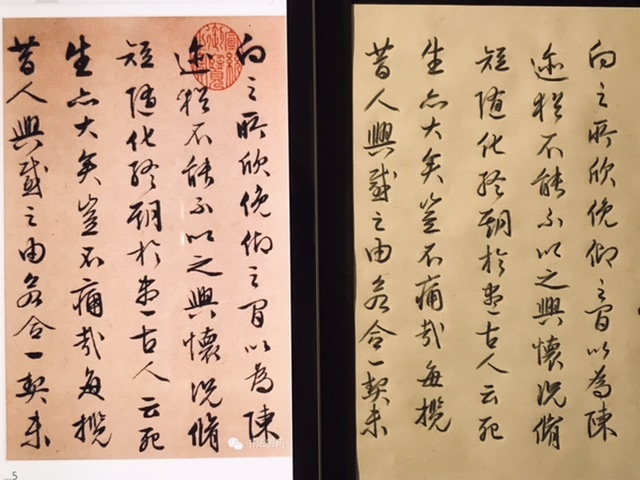 向之所欣俛仰之間以為陳
迹猶不能不以之興懷況脩
短隨化終期於盡古人云死
生亦大矣豈不痛哉每攬
昔人興感之由若合一契未
...5
向之所欣俛仰之間以為陳
迹猶不能不以之興懷況脩
短隨化終期於盡古人云死
生亦大矣豈不痛哉每攬
昔人興感之由若合一契未